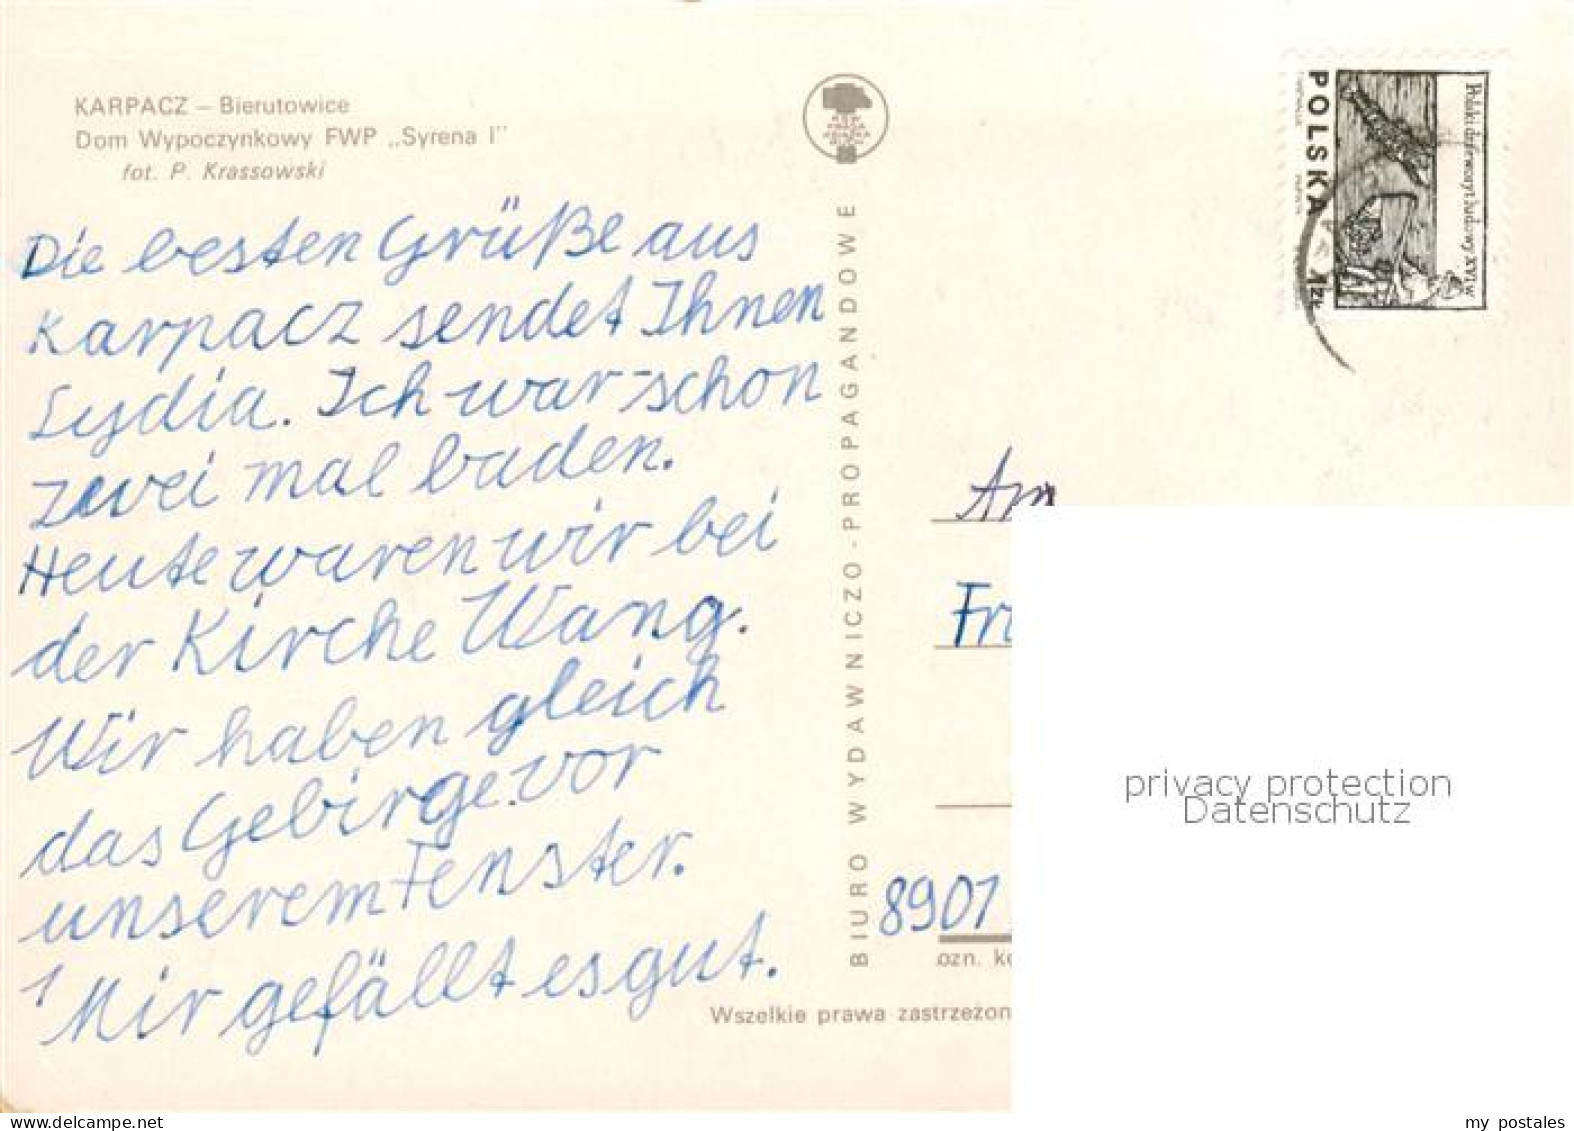 KARPACZ – Bierutowice
Dom Wypoczynkowy FWP „Syrena I”
fot. P. Krassowski
Die besten Grüße aus
Karpacz sendet Ihnen
Lydia. Ich war schon
zwei mal baden.
Heute waren wir bei
der Kirche Wang.
Wir haben gleich
das Gebirge vor
unserem Fenster.
Mir gefällt es gut.
BIURO WYDAWNICZO-PROPAGANDOWE
POLSKA
1 ZŁ
Polski drzeworyt ludowy XVI w
An
Fr
8901
ozn. ko
Wszelkie prawa zastrzeżon
privacy protection
Datenschutz
my postales